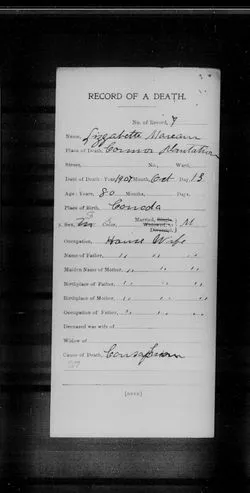 RECORD OF A DEATH.
No. of Record, 7
Name, Lizzabette
Place of Death, Connor Plantation
Street, No., Ward.
Date of Death: Year, 1907 Month, Oct Day, 13
Age: Years, 80 Months, Days.
Place of Birth, Canoda
Sex, Color, Married, Single, Widowed or Divorced. M
Occupation, House Wife
Name of Father, " " "
Maiden Name of Mother, " " "
Birthplace of Father, " " "
Birthplace of Mother, " " "
Occupation of Father, " " "
Deceased was wife of
Widow of
Cause of Death,
[OVER]